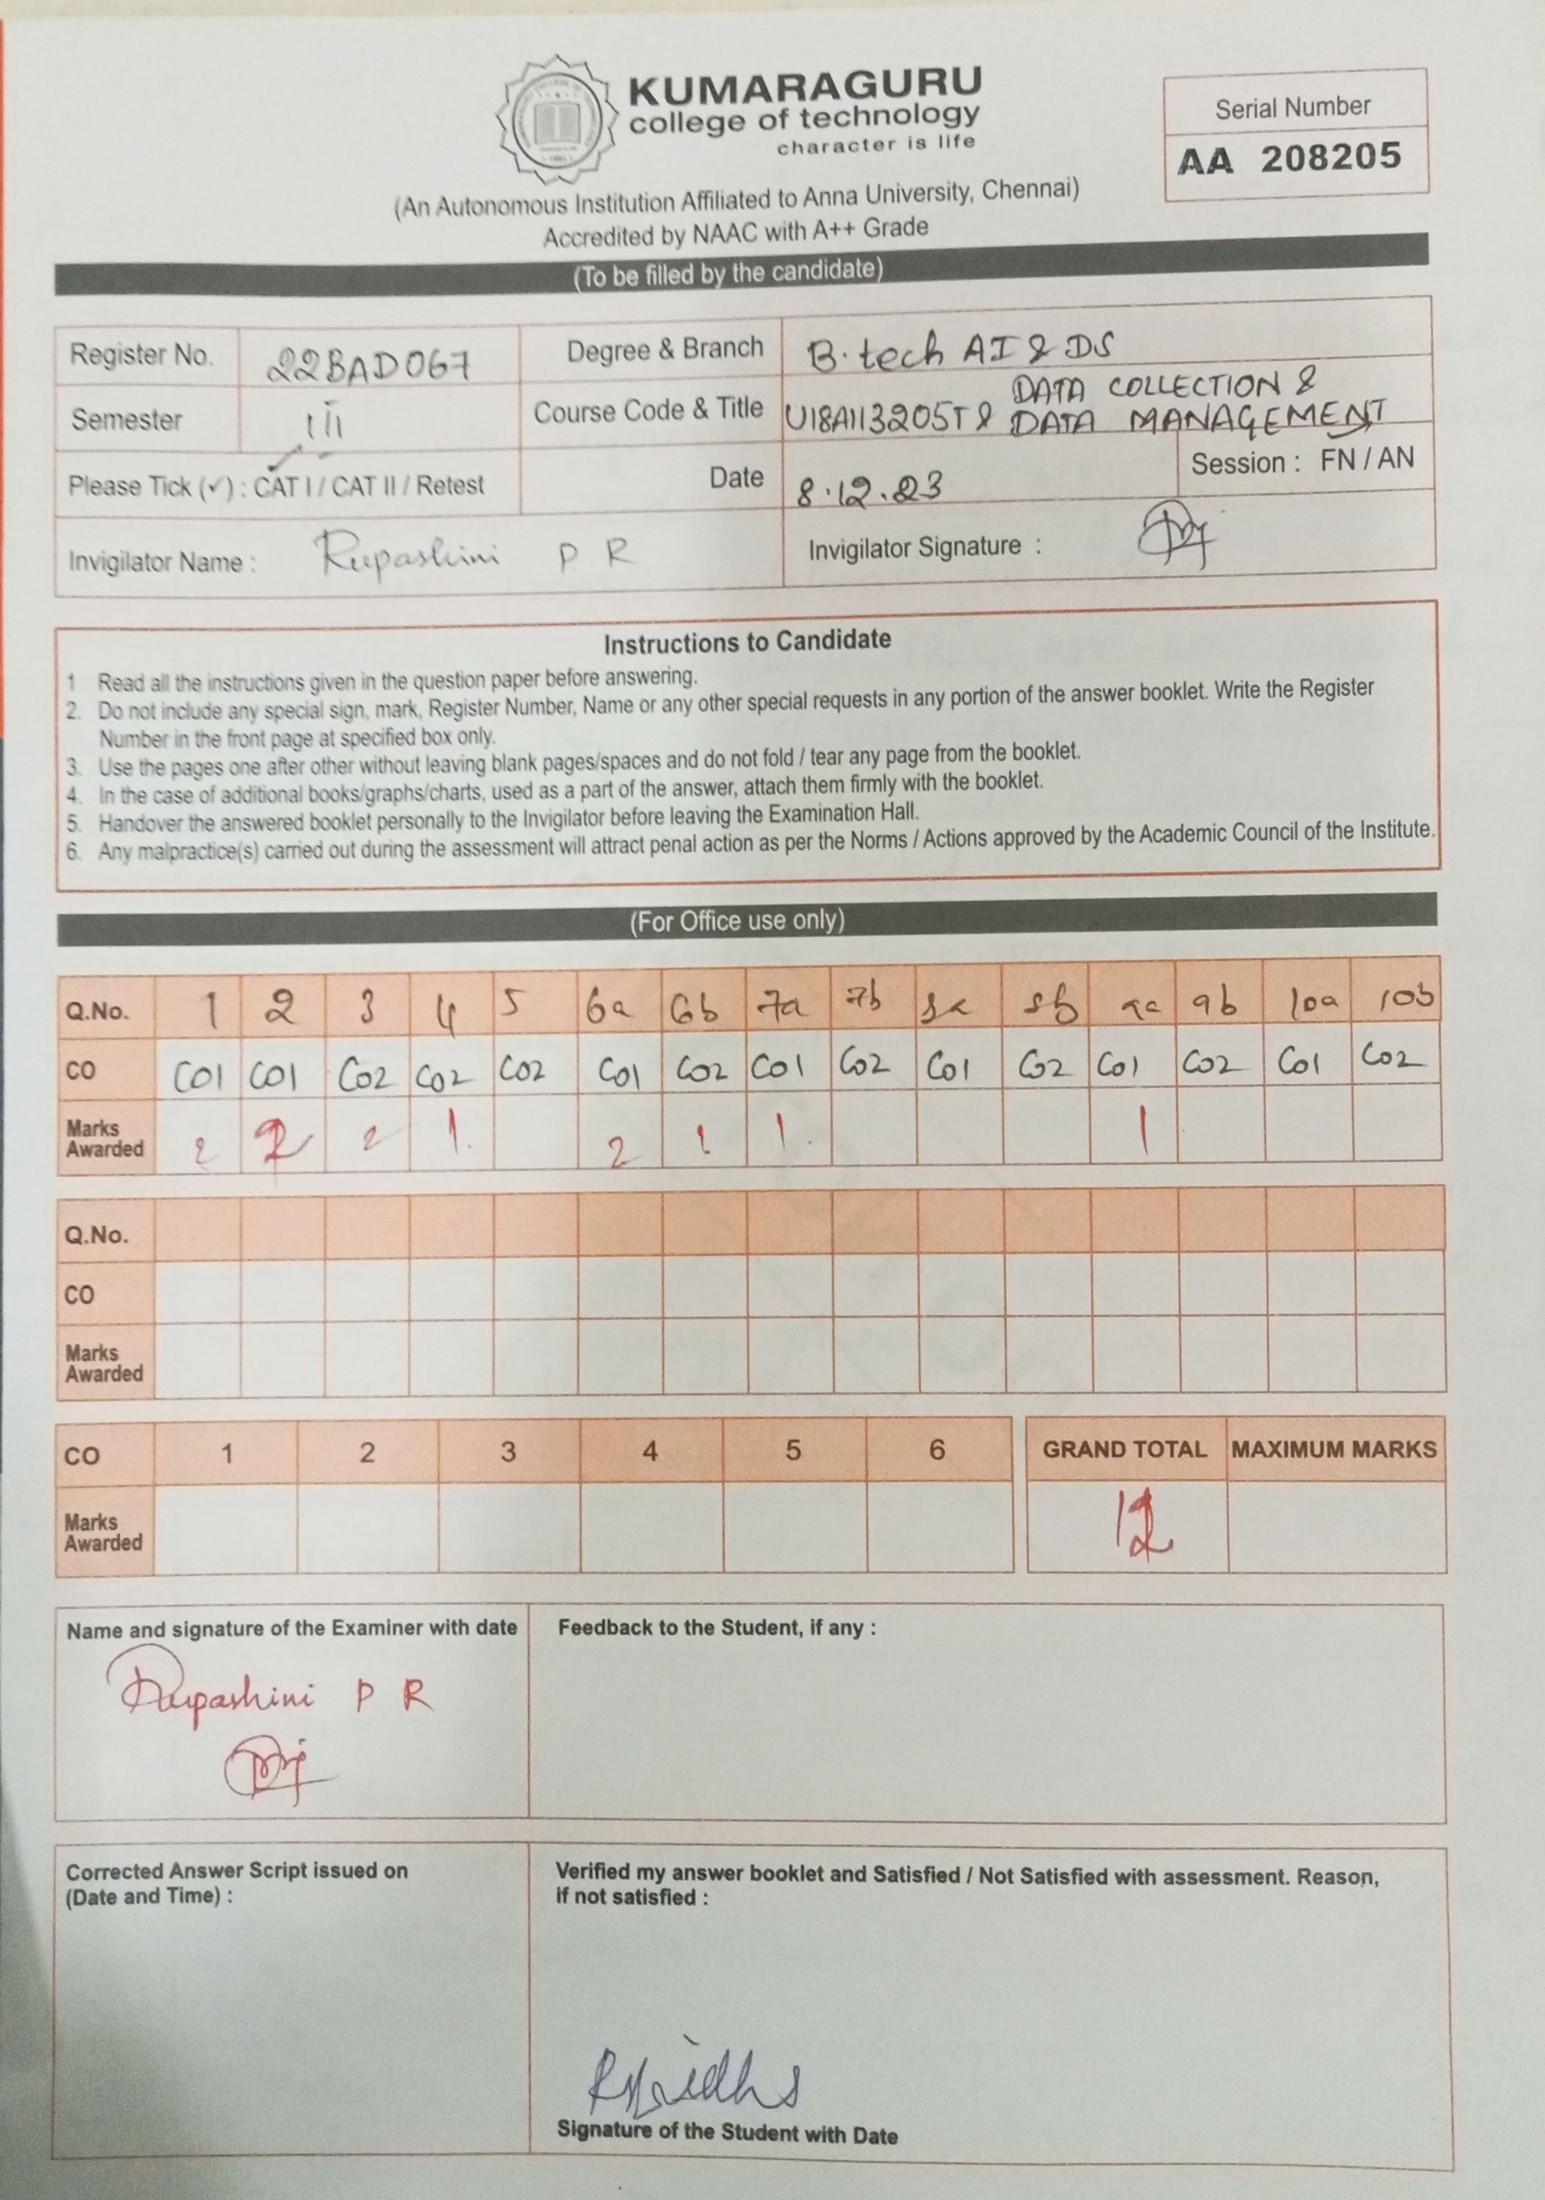 KUMARAGURU
college of technology
character is life
Serial Number
AA 208205
(An Autonomous Institution Affiliated to Anna University, Chennai)
Accredited by NAAC with A++ Grade
(To be filled by the candidate)
Register No. 22BAD067 Degree & Branch B.tech AI & DS
Semester III Course Code & Title U18AII3205T & DATA COLLECTION & DATA MANAGEMENT
Please Tick (✓) : CAT I / CAT II / Retest Date 8.12.23 Session : FN / AN
Invigilator Name : Rupashini P R Invigilator Signature :
Instructions to Candidate
1 Read all the instructions given in the question paper before answering.
2. Do not include any special sign, mark, Register Number, Name or any other special requests in any portion of the answer booklet. Write the Register
Number in the front page at specified box only.
3. Use the pages one after other without leaving blank pages/spaces and do not fold / tear any page from the booklet.
4. In the case of additional books/graphs/charts, used as a part of the answer, attach them firmly with the booklet.
5. Handover the answered booklet personally to the Invigilator before leaving the Examination Hall.
6. Any malpractice(s) carried out during the assessment will attract penal action as per the Norms / Actions approved by the Academic Council of the Institute.
(For Office use only)
Q.No. 1 2 3 4 5 6a 6b 7a 7b 8a 8b 9a 9b 10a 10b
CO CO1 CO1 CO2 CO2 CO2 CO1 CO2 CO1 CO2 CO1 CO2 CO1 CO2 CO1 CO2
Marks Awarded 2 2 2 1. 2 1 1. 1
Q.No.
CO
Marks Awarded
CO 1 2 3 4 5 6 GRAND TOTAL MAXIMUM MARKS
Marks Awarded 12
Name and signature of the Examiner with date
Rupashini P R
Feedback to the Student, if any :
Corrected Answer Script issued on
(Date and Time) :
Verified my answer booklet and Satisfied / Not Satisfied with assessment. Reason,
if not satisfied :
Signature of the Student with Date